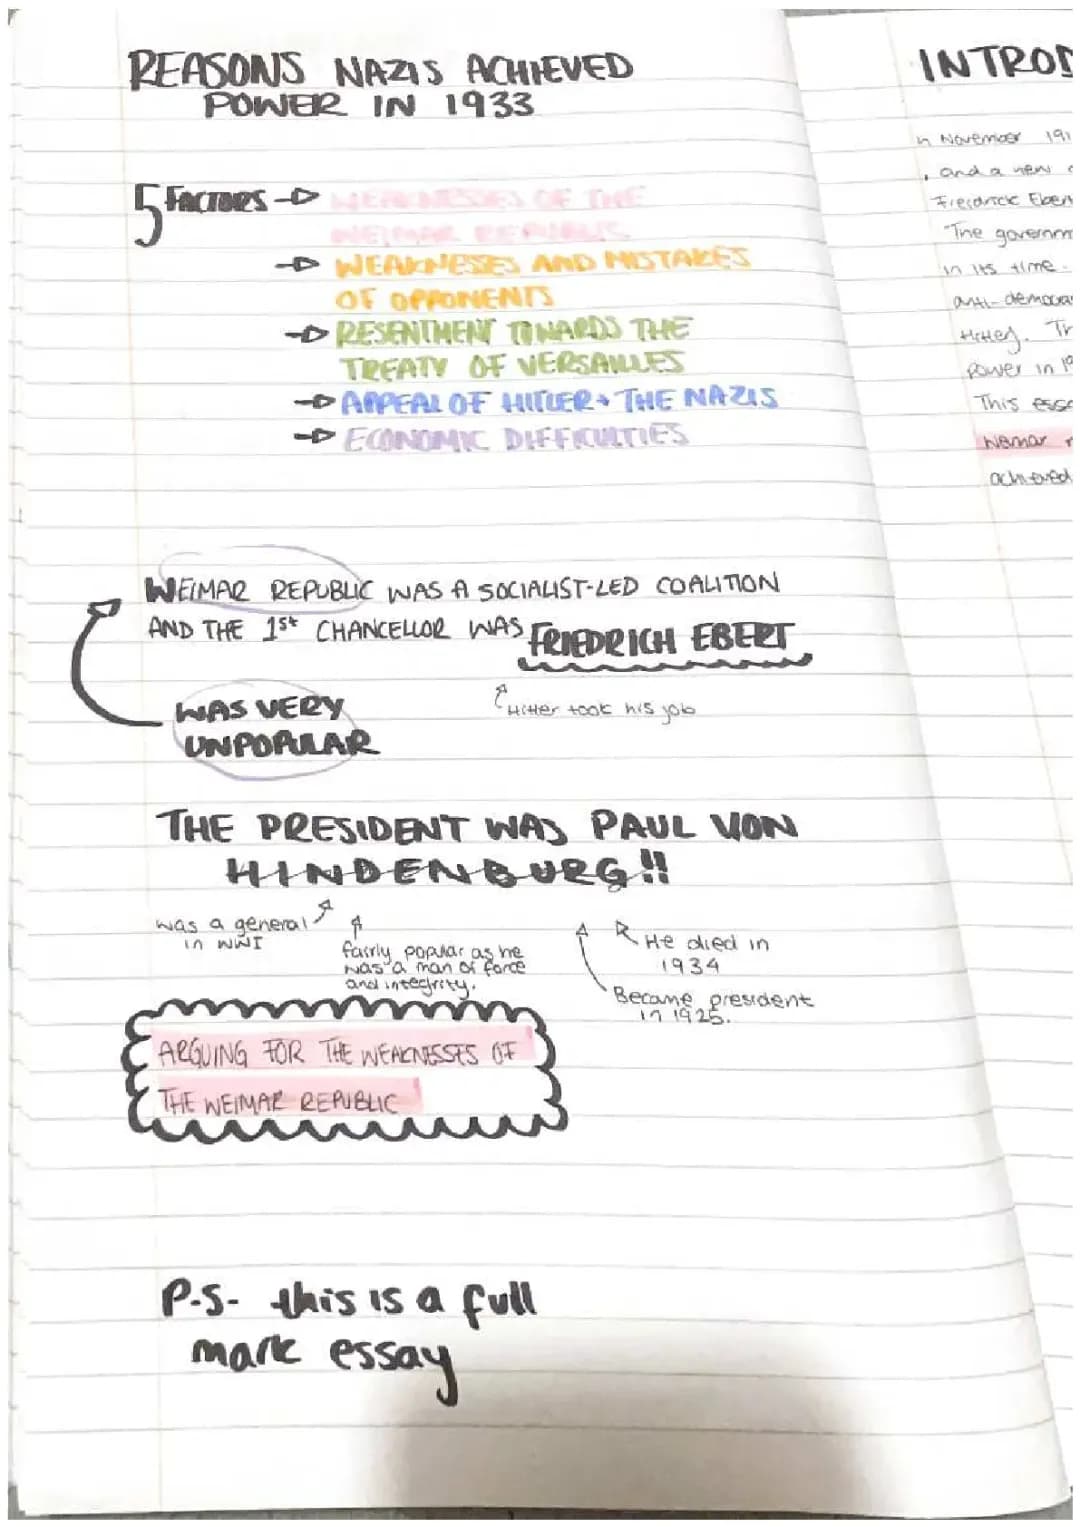 REASONS NAZIS ACHIEVED
POWER IN 1933
5 FACTORS → WEAKNESSES OF THE
WEIMAR REPUBLIC
→ WEAKNESSES AND MISTAKES
OF OPPONENTS
→ RESENTMENT TOWARDS THE
TREATY OF VERSAILLES
→ APPEAL OF HITLER + THE NAZIS
→ ECONOMIC DIFFICULTIES
WEIMAR REPUBLIC WAS A SOCIALIST-LED COALITION
AND THE 1st CHANCELLOR WAS FRIEDRICH EBERT
Hitler took his job
WAS VERY
UNPOPULAR
THE PRESIDENT WAS PAUL VON
HINDENBURG!!
was a general
in WWI
fairly popular as he
was a man of force
and integrity.
He died in
1934
Became president
in 1925.
ARGUING FOR THE WEAKNESSES OF
THE WEIMAR REPUBLIC
P.S- this is a full
mark essay
INTROD
n November 191
, and a new
Frederick Eber
The governm
in its time.
anti-democra
Hitler). Tr
Power in 19
This essa
Weimar r
achieved